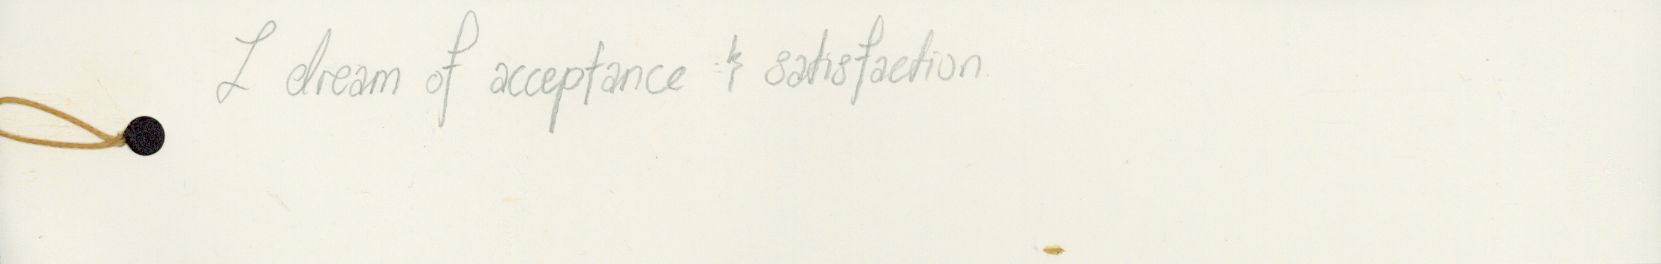 I dream of acceptance & satisfaction